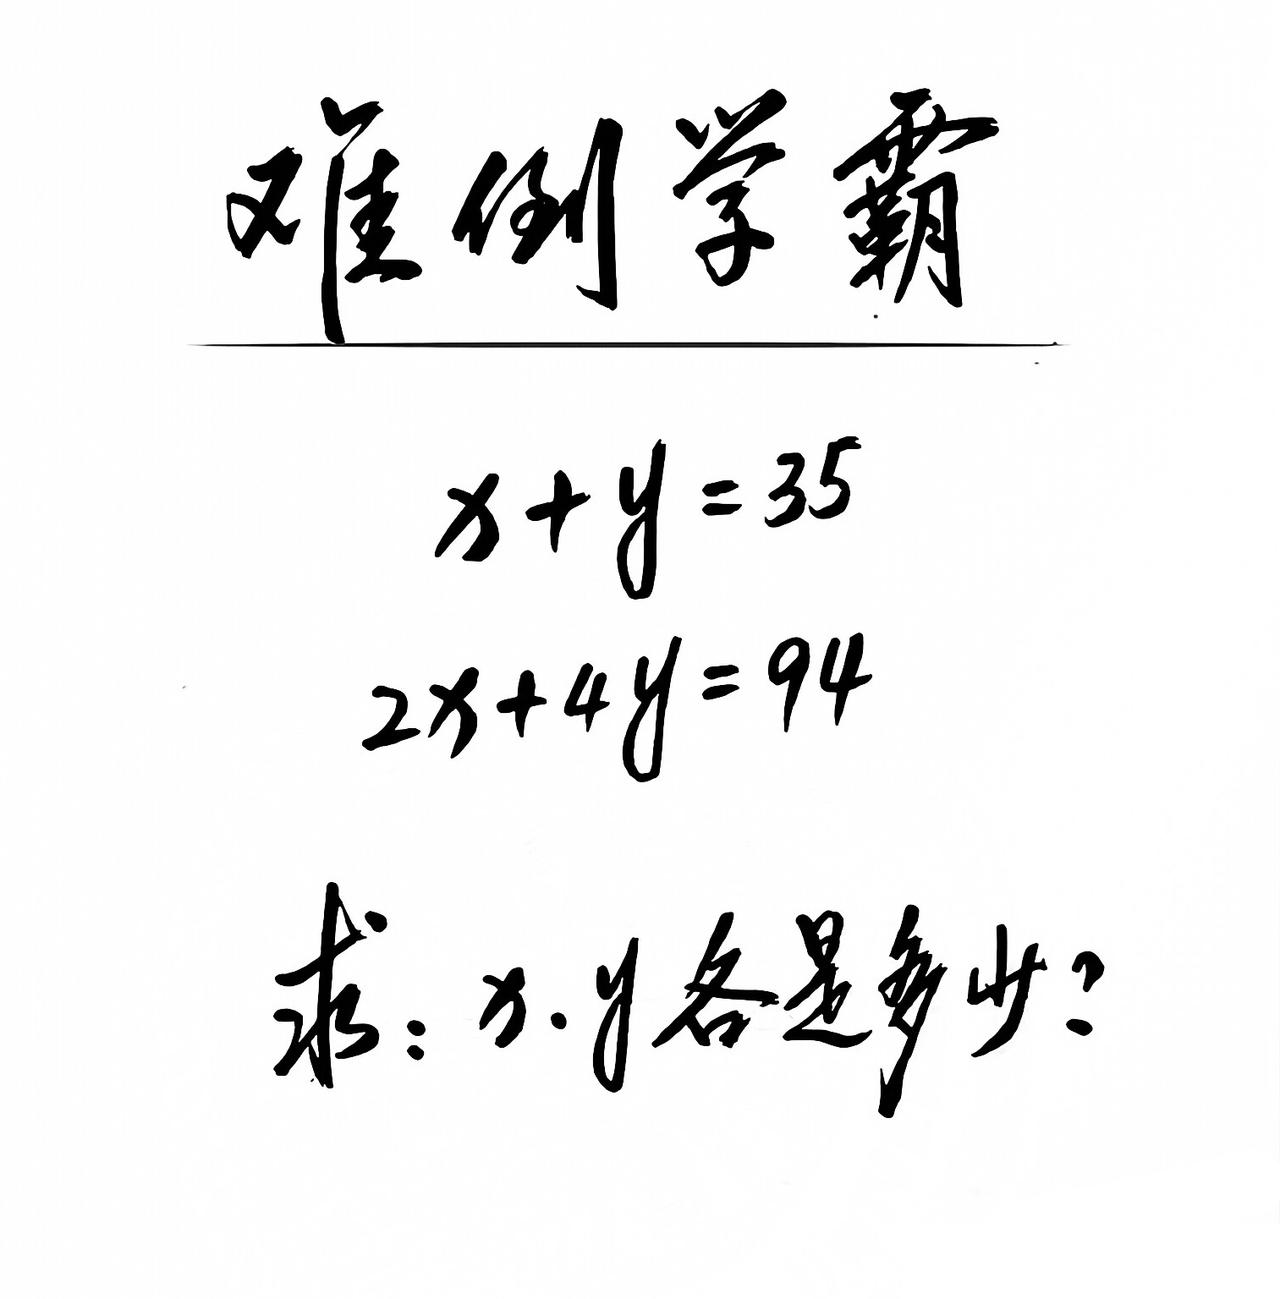 难倒学霸
x+y=35
2x+4y=94
求:x.y各是多少?